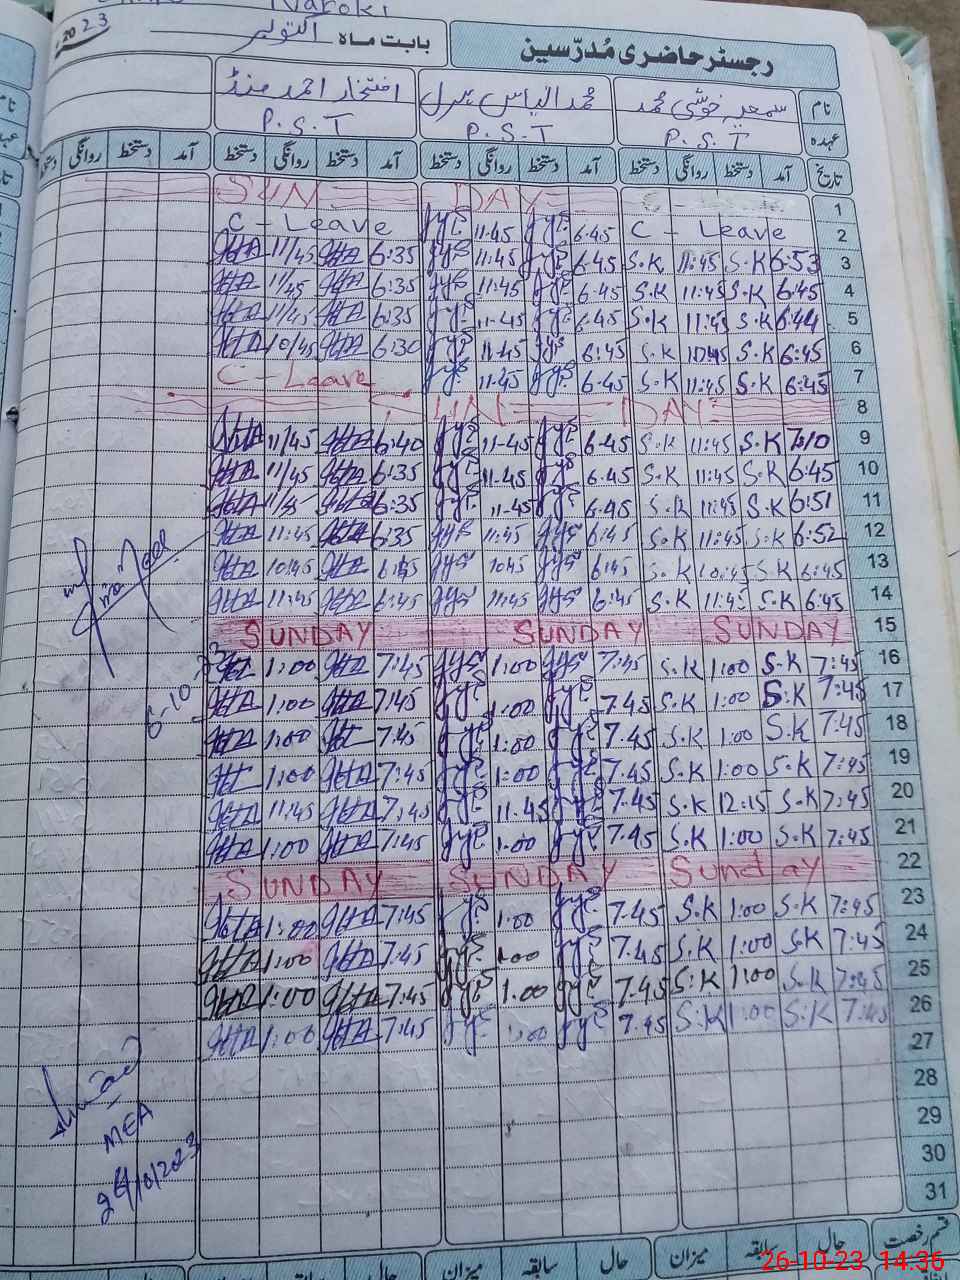 Naroki
2023
بابت ماہ اکتوبر
رجسٹر حاضری مُدرّسین
نام سمعیہ خوشی محمد محمد الیاس افتخار احمد منڈ
عہدہ P.S.T P.S.T P.S.T
تاریخ آمد دستخط روانگی دستخط آمد دستخط روانگی دستخط آمد دستخط روانگی دستخط آمد دستخط روانگی
SUN DAY 1
C - Leave 11.45 6.45 C - Leave 2
11/45 6:35 11.45 6.45 S.K 11:45 S.K 6:53 3
11/45 6:35 11.45 6.45 S.K 11:45 S.K 6:45 4
11/45 6:35 11.45 6.45 S.K 11:45 S.K 6:44 5
10/45 6:30 11.45 6:45 S.K 10:45 S.K 6:45 6
C - Leave 11.45 6.45 S.K 11:45 S.K 6:45 7
SUN DAY 8
11/45 6:40 11-45 6.45 S.K 11:45 S.K 7:10 9
11/45 6:35 11.45 6.45 S.K 11:45 S.K 6:45 10
6:35 11.45 6.45 S.K 11:45 S.K 6:51 11
11:45 6:35 11:45 6:45 S.K 11:45 S.K 6:52 12
10:45 10:45 6:45 S.K 10:45 S.K 6:45 13
11:45 6:45 11:45 6:45 S.K 11:45 S.K 6:45 14
SUNDAY SUNDAY SUNDAY 15
1:00 7:45 1:00 7:45 S.K 1:00 S.K 7:45 16
1:00 7:45 1:00 7.45 S.K 1:00 S.K 7:45 17
1:00 7:45 1:00 7.45 S.K 1:00 S.K 7:45 18
1:00 7:45 1:00 7.45 S.K 1:00 S.K 7:45 19
11:45 7:45 11.45 7.45 S.K 12:15 S.K 7:45 20
1:00 7:45 1.00 7.45 S.K 1:00 S.K 7:45 21
SUNDAY SUNDAY Sunday 22
1:00 7:45 1.00 7.45 S.K 1:00 S.K 7:45 23
1:00 7:45 1.00 7.45 S.K 1:00 S.K 7:45 24
1:00 7:45 1.00 7.45 S.K 1:00 S.K 7:45 25
1:00 7:45 1:00 7.45 S.K 1:00 S.K 7:45 26
27
28
29
30
31
MEA
24/10/2023
قسم رخصت حال سابقہ میزان حال سابقہ میزان
26-10-23 14:36